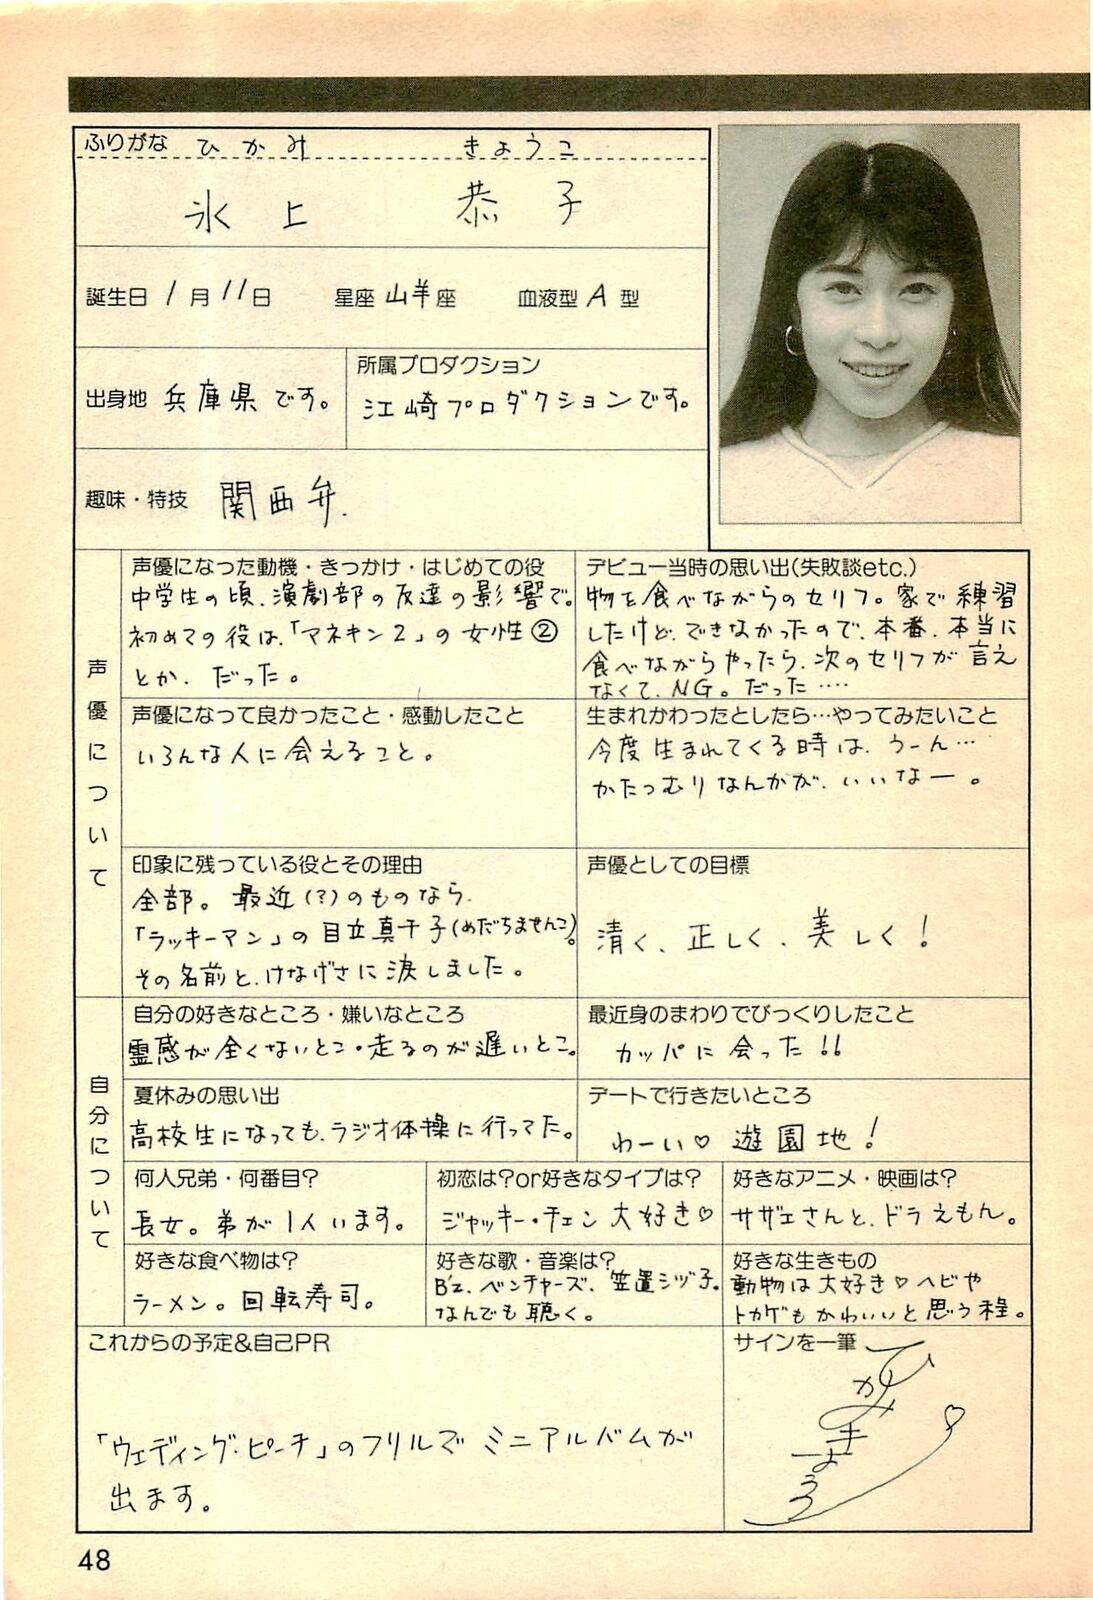 ふりがな ひかみ きょうこ
氷上 恭子
誕生日 1月11日 星座 山羊座 血液型 A 型
出身地 兵庫県です。
所属プロダクション
江崎プロダクションです。
趣味・特技 関西弁.
声優について
声優になった動機・きっかけ・はじめての役
中学生の頃、演劇部の友達の影響で。
初めての役は、「マネキン2」の女性②
とか、だった。
デビュー当時の思い出(失敗談etc.)
物を食べながらのセリフ。家で練習
したけど、できなかったので、本番、本当に
食べながらやったら、次のセリフが言え
なくて、NG。だった‥‥
声優になって良かったこと・感動したこと
いろんな人に会えること。
生まれかわったとしたら…やってみたいこと
今度生まれてくる時は、うーん…
かたつむりなんかが、いいなー。
印象に残っている役とその理由
全部。最近(?)のものなら、
「ラッキーマン」の目立真千子(めだちませんこ)。
その名前と、けなげさに涙しました。
声優としての目標
清く、正しく、美しく!
自分について
自分の好きなところ・嫌いなところ
霊感が全くないとこ・走るのが遅いとこ。
最近身のまわりでびっくりしたこと
カッパに会った!!
夏休みの思い出
高校生になっても、ラジオ体操に行ってた。
デートで行きたいところ
わーい♡遊園地!
何人兄弟・何番目?
長女。弟が1人います。
初恋は?or好きなタイプは?
ジャッキー・チェン大好き♡
好きなアニメ・映画は?
サザエさんと、ドラえもん。
好きな食べ物は?
ラーメン。回転寿司。
好きな歌・音楽は?
B'z、ベンチャーズ、笠置シヅ子。
なんでも聴く。
好きな生きもの
動物は大好き♡ヘビや
トカゲもかわいいと思う程。
これからの予定&自己PR
「ウェディング・ピーチ」のフリルでミニアルバムが
出ます。
サインを一筆
ひかみきょうこ
48